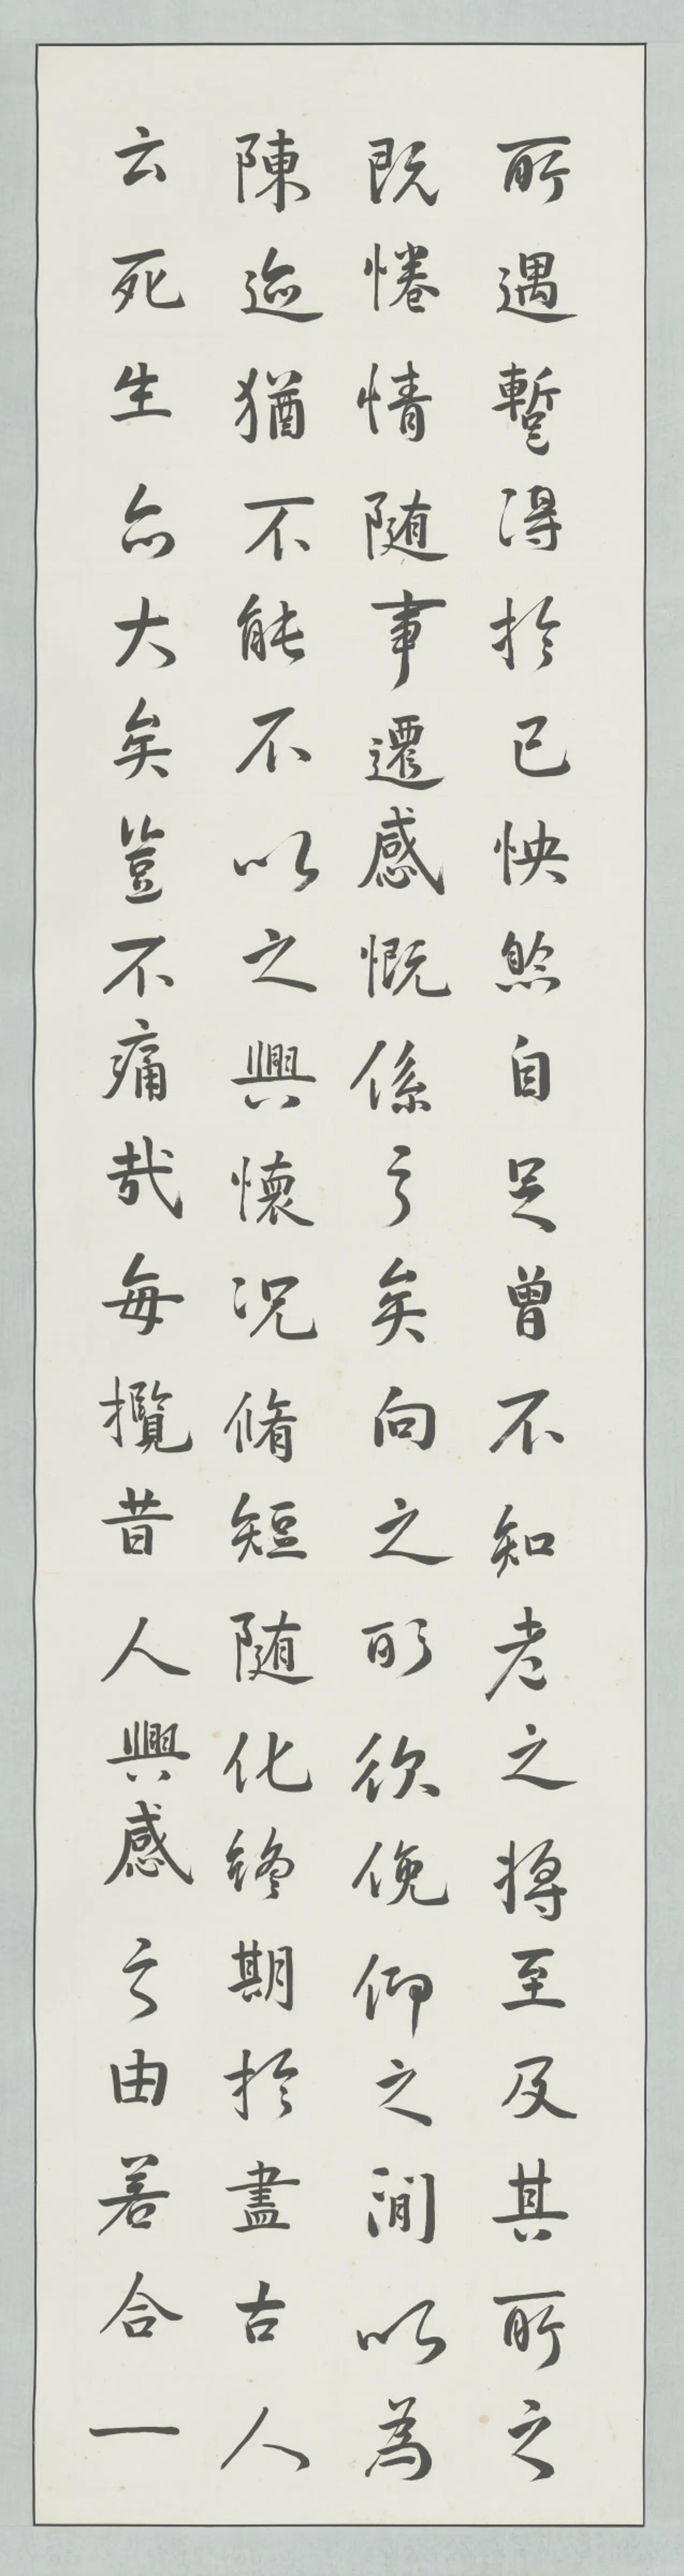 所遇蹔得於己怏然自足曾不知老之將至及其所之
既惓情随事遷感慨係之矣向之所欣俛仰之間以為
陳迹猶不能不以之興懷况脩短随化終期於盡古人
云死生亦大矣豈不痛哉每攬昔人興感之由若合一